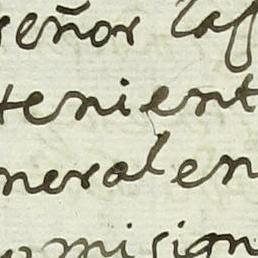 señor
tenient
neral en
omision